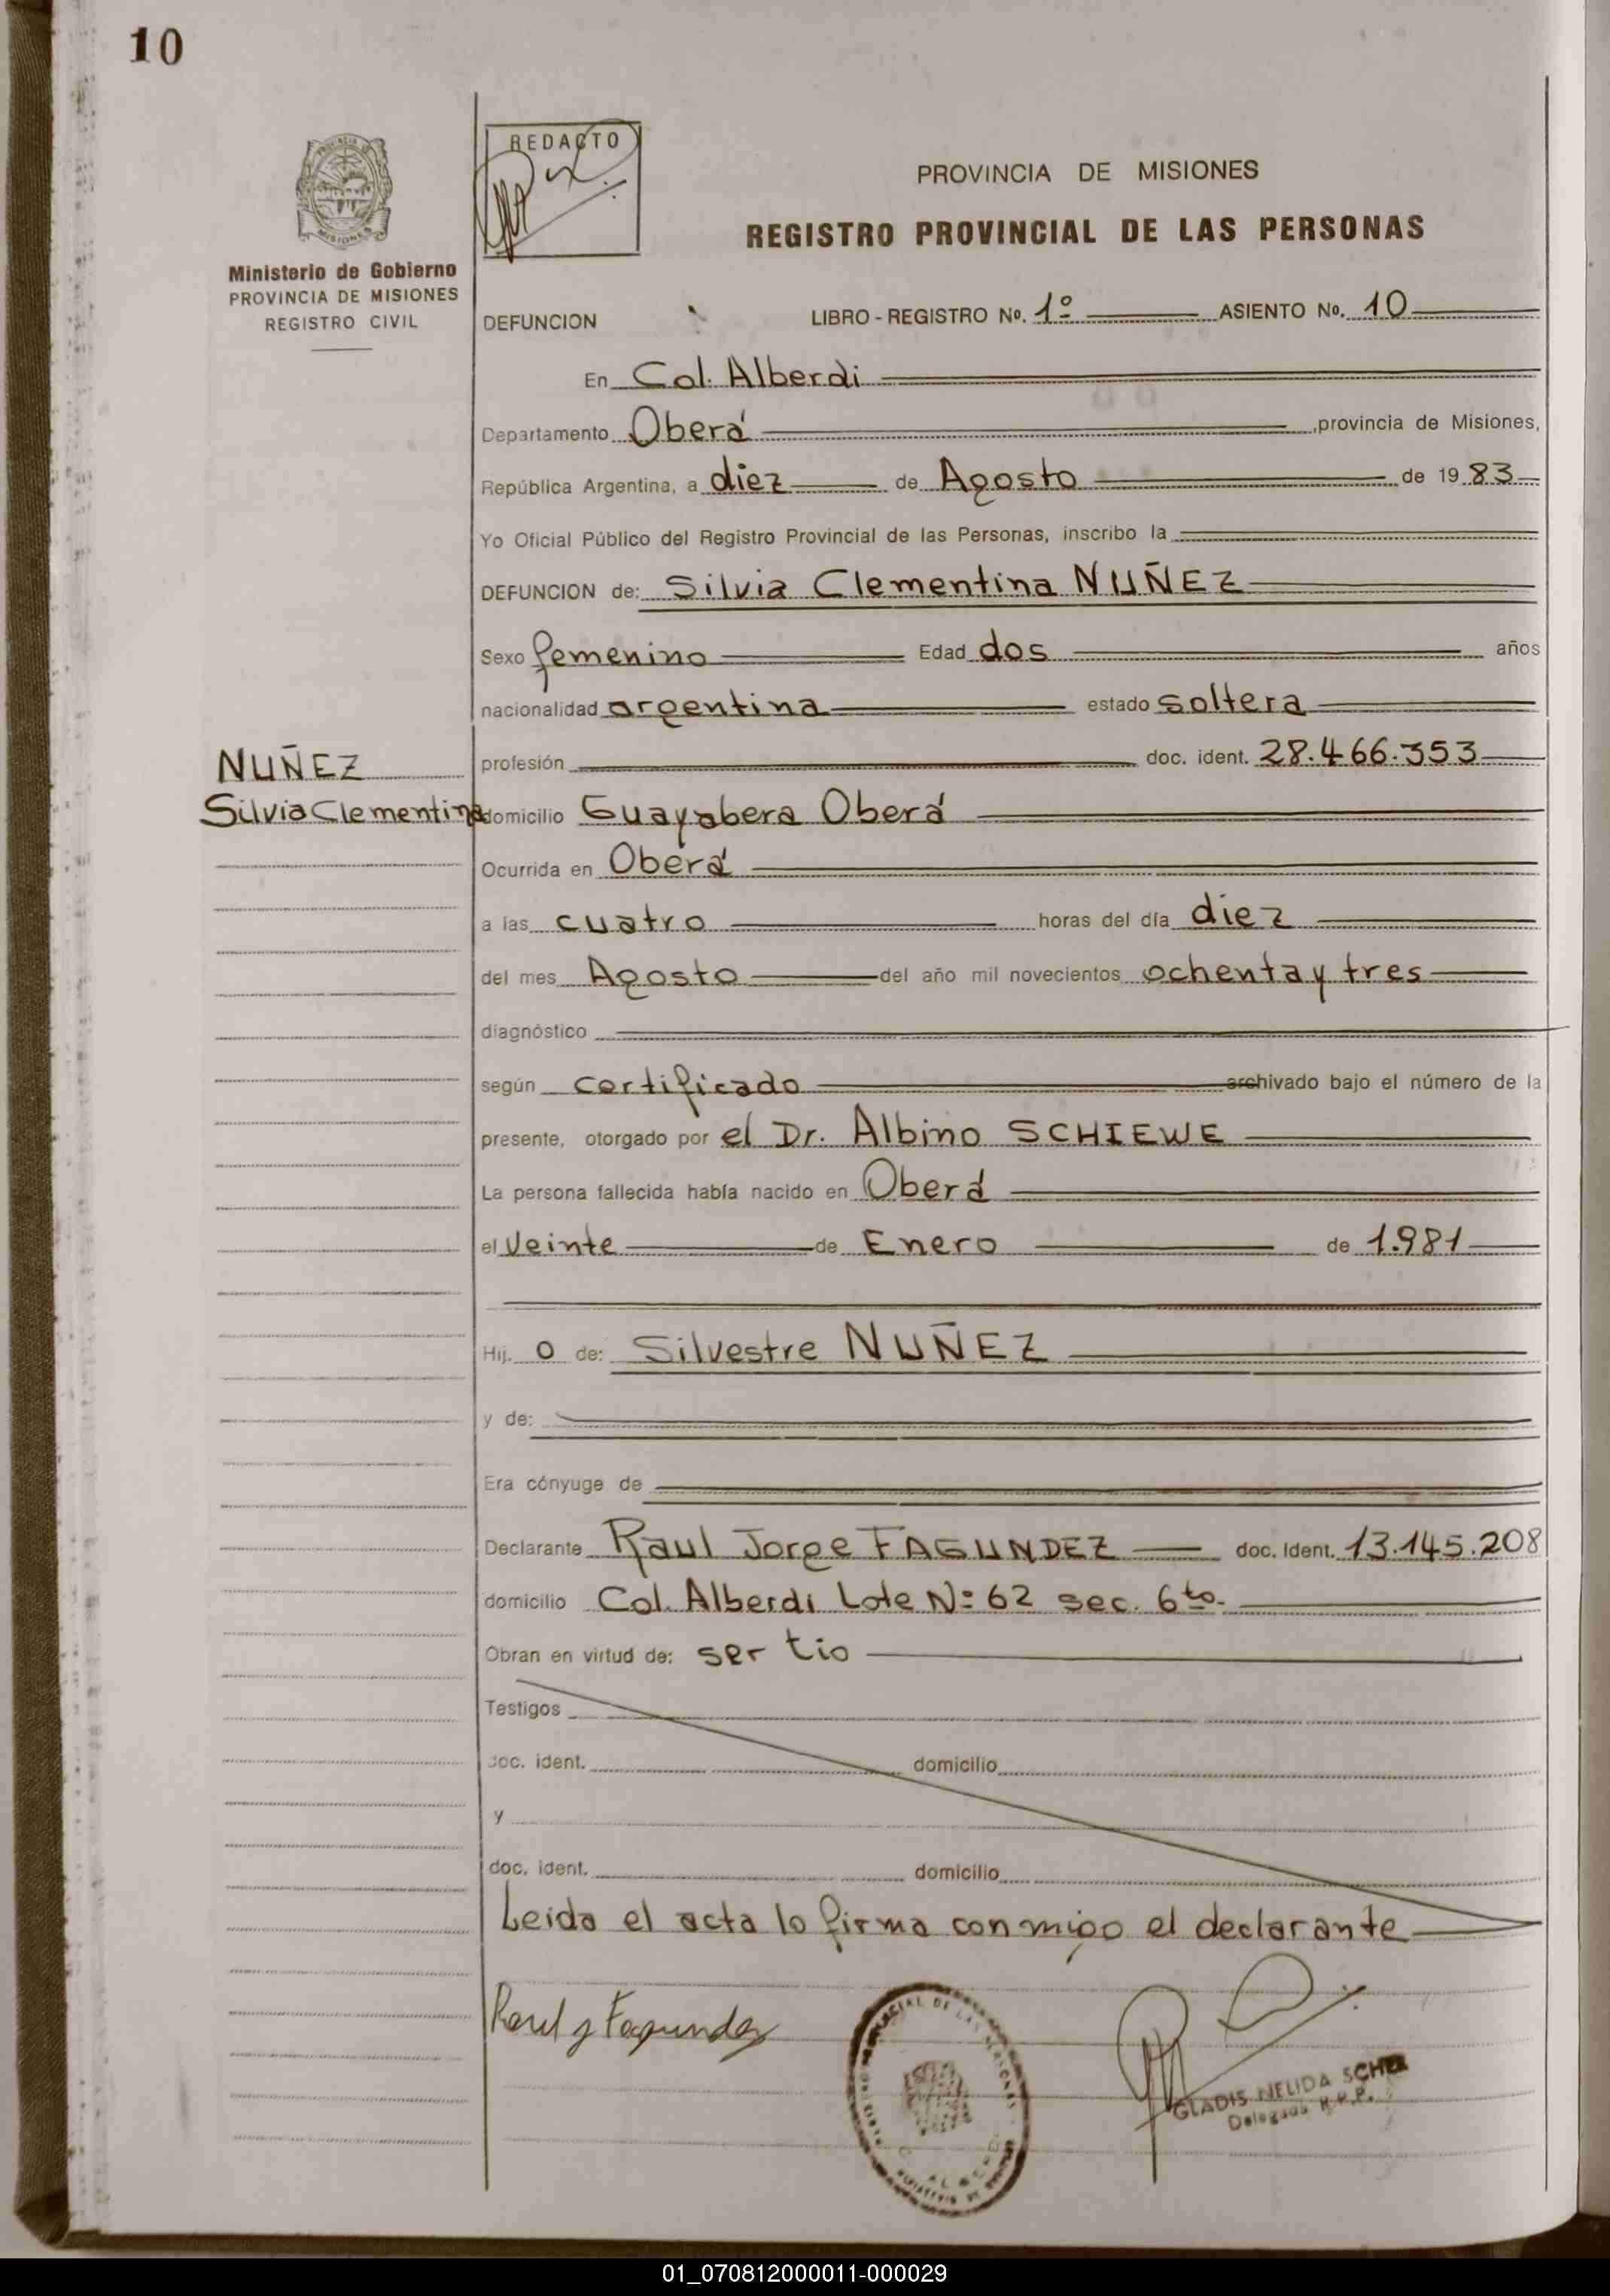 10
REDACTO
PROVINCIA DE MISIONES
REGISTRO PROVINCIAL DE LAS PERSONAS
Ministerio de Gobierno
PROVINCIA DE MISIONES
REGISTRO CIVIL
DEFUNCION LIBRO - REGISTRO Nº. 1º ASIENTO No. 10
En Col. Alberdi
Departamento Oberá, provincia de Misiones,
República Argentina, a diez de Agosto de 1983
Yo Oficial Público del Registro Provincial de las Personas, inscribo la
DEFUNCION de: Silvia Clementina NUÑEZ
Sexo femenino Edad dos años
nacionalidad argentina estado soltera
NUÑEZ
Silvia Clementina
profesión doc. ident. 28.466.353
domicilio Guayabera Oberá
Ocurrida en Oberá
a las cuatro horas del día diez
del mes Agosto del año mil novecientos ochenta y tres
diagnóstico
según certificado archivado bajo el número de la
presente, otorgado por el Dr. Albino SCHIEWE
La persona fallecida había nacido en Oberá
el Veinte de Enero de 1.981
Hij. o de: Silvestre NUÑEZ
y de:
Era cónyuge de
Declarante Raul Jorge FAGUNDEZ doc. Ident. 13.145.208
domicilio Col. Alberdi Lote Nº 62 sec. 6to.
Obran en virtud de: ser tio
Testigos
doc. ident. domicilio
y
doc. ident. domicilio
Leida el acta lo firma conmigo el declarante
Raul J Fagundez
GLADIS NELIDA
Delegada R.P.P.
01_070812000011-000029